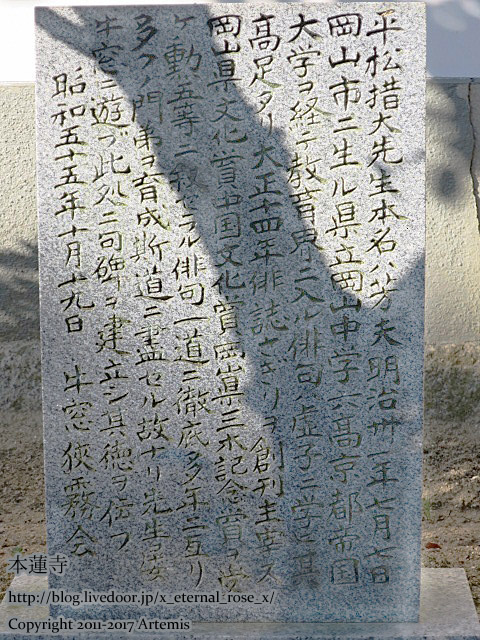 平松措大先生本名ハ芳夫明治卅一年七月七日
岡山市ニ生ル県立岡山中学六高京都帝国
大学ヲ経テ教育界ニ入ル俳句ハ虚子ニ学ビ其
高足タリ大正十四年俳誌さぎりヲ創刊主宰ス
岡山県文化賞中国文化賞岡山県三木記念賞ヲ受
ケ勲五等ニ叙セラル俳句一道ニ徹底多年ニ亙リ
多クノ門弟ヲ育成斯道ニ尽セル故ナリ先生
牛窓ニ遊ブ此処ニ句碑ヲ建立シ其徳ヲ伝フ
昭和五十五年十月十九日 牛窓狭霧会
本蓮寺
http://blog.livedoor.jp/x_eternal_rose_x/
Copyright 2011-2017 Artemis